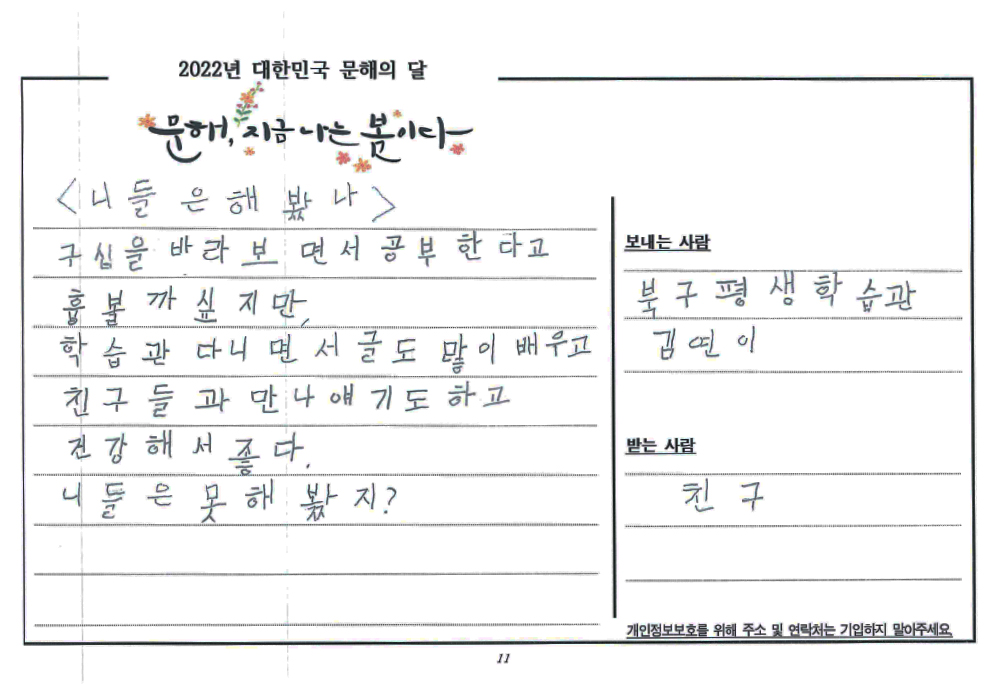 2022년 대한민국 문해의 달
문해, 지금 나는 봄이다
<니들은해봤나>
구십을 바라보면서 공부한다고
흡볼까싶지만,
학습관 다니면서글도 많이배우고
친구들과만나얘기도하고
건강해서좋다.
니들은못해봤지?
보내는 사람
북구평생학습관
김연이
받는 사람
친구
개인정보보호를 위해 주소 및 연락처는 기입하지 말아주세요.
11